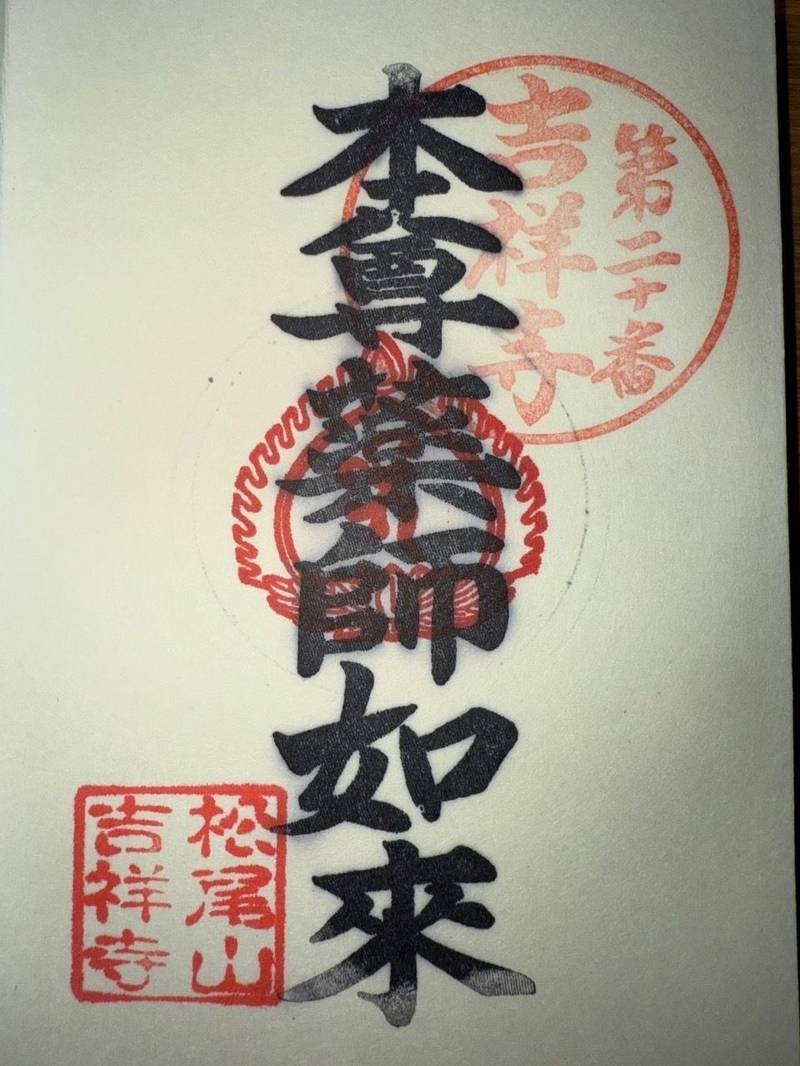 第二十番
吉祥寺
本尊薬師如來
松尾山
吉祥寺